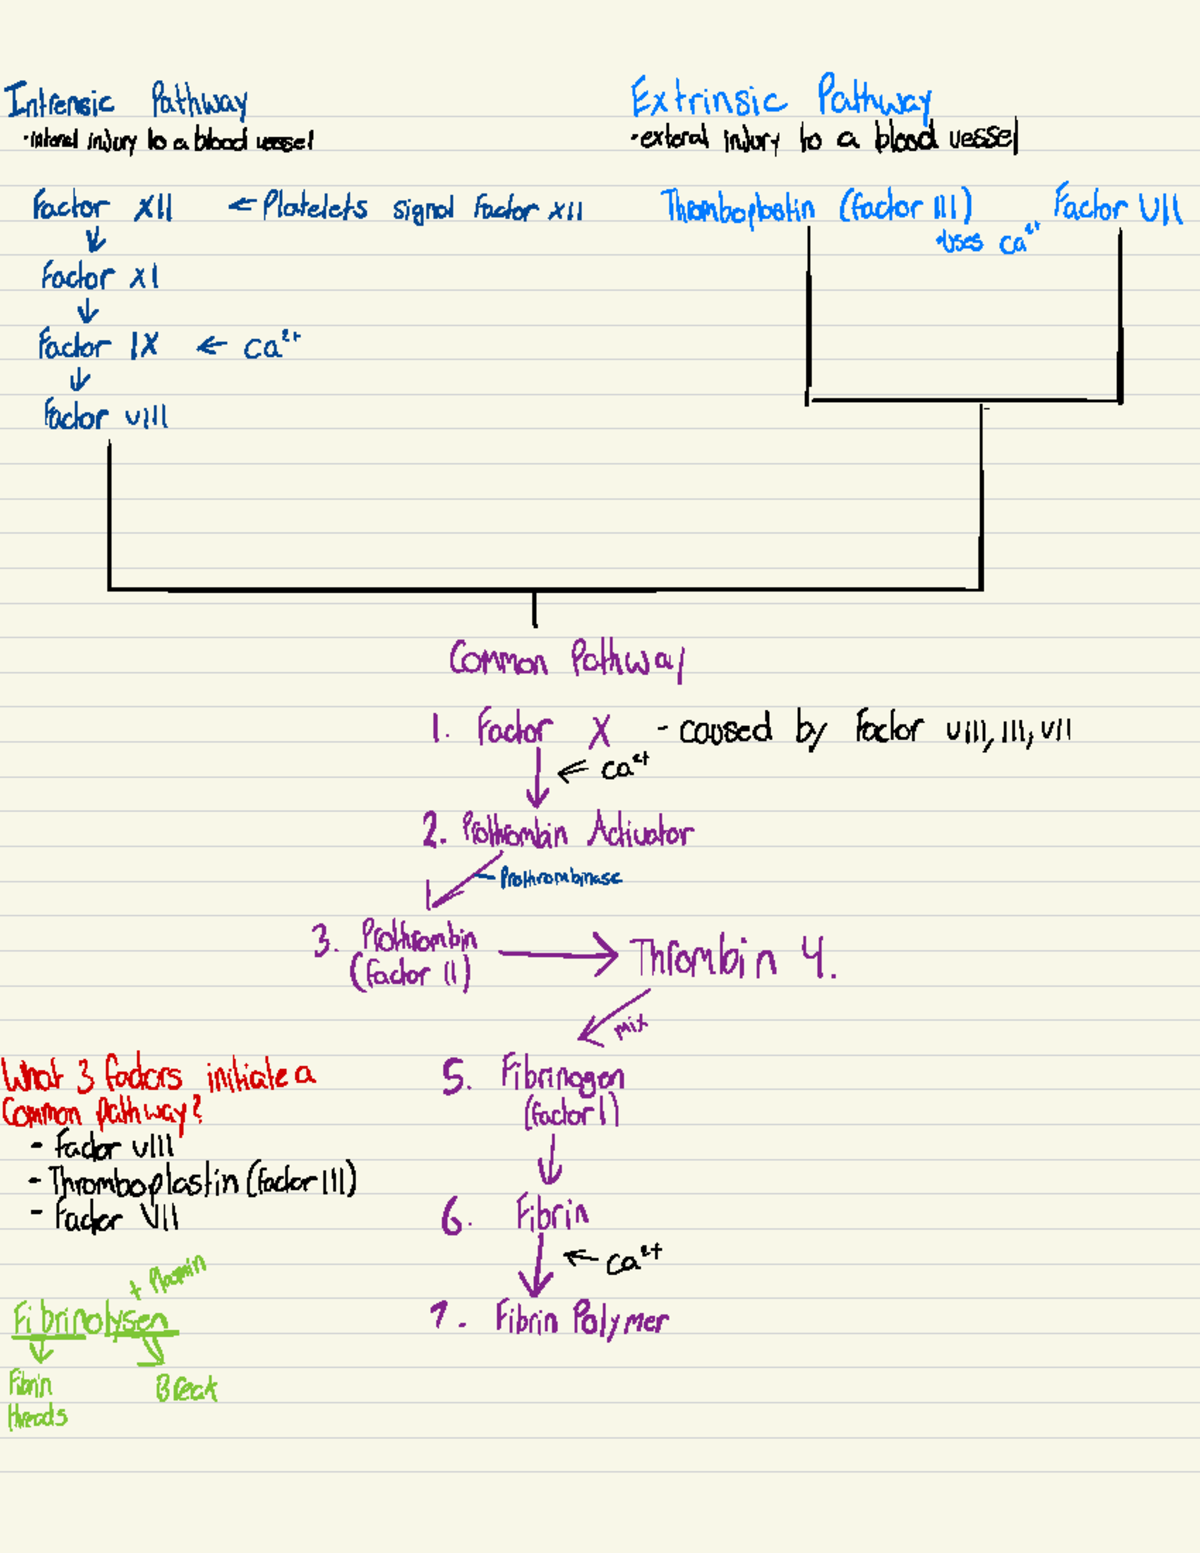 Intrensic Pathway
·interal injury to a blood vessel
Factor XII ← Platelets signal Factor XII
↓
Factor XI
↓
Factor IX ← Ca²⁺
↓
Factor VIII
Extrinsic Pathway
·exteral injury to a blood vessel
Thromboplastin (factor III) Factor VII
·uses Ca²⁺
Common Pathway
1. Factor X - caused by Factor VIII, III, VII
← Ca²⁺
2. Prothrombin Activator
Prothrombinase
3. Prothrombin → Thrombin 4.
(factor II)
mix
5. Fibrinogen
(factor I)
↓
6. Fibrin
← Ca²⁺
7. Fibrin Polymer
What 3 factors initiate a
Common pathway?
- Factor VIII
- Thromboplastin (factor III)
- Factor VII
+ Plasmin
Fibrinolysen
Fibrin
threads
Break